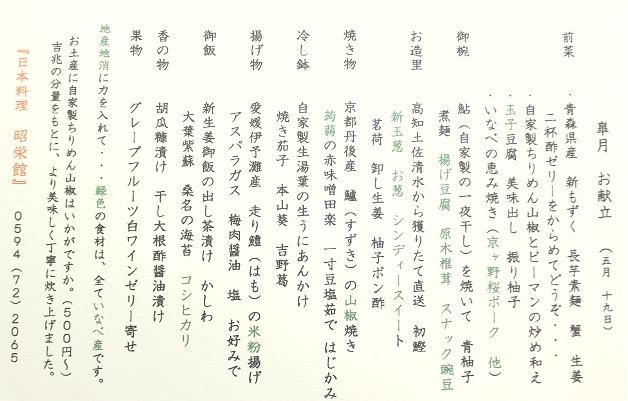 皐月　お献立　（五月　十九日）
前菜　・青森県産　新もずく　長芋素麺　蟹　生姜
二杯酢ゼリーをからめてどうぞ・・・
・自家製ちりめん山椒とピーマンの炒め和え
・玉子豆腐　美味出し　振り柚子
・いなべの恵み焼き（京ヶ野桜ポーク　他）
御椀　鮎（自家製の一夜干し）を焼いて　青柚子
煮麺　揚げ豆腐　原木椎茸　スナック豌豆
お造里　高知土佐清水から獲りたて直送　初鰹
新玉葱　お葱　シンディースイート
茗荷　卸し生姜　柚子ポン酢
焼き物　京都丹後産　鱸（すずき）の山椒焼き
蒟蒻の赤味噌田楽　一寸豆塩茹で　はじかみ
冷し鉢　自家製生湯葉の生うにあんかけ
焼き茄子　本山葵　吉野葛
揚げ物　愛媛伊予灘産　走り鱧（はも）の米粉揚げ
アスパラガス　梅肉醤油　塩　お好みで
御飯　新生姜御飯の出し茶漬け　かしわ
大葉紫蘇　桑名の海苔　コシヒカリ
香の物　胡瓜糠漬け　干し大根酢醤油漬け
果物　グレープフルーツ白ワインゼリー寄せ
地産地消に力を入れて・・・緑色の食材は、全ていなべ産です。
お土産に自家製ちりめん山椒はいかがですか。（５００円〜）
吉兆の分量をもとに、より美味しく丁寧に炊き上げました。
『日本料理　昭栄館』　０５９４（７２）２０６５